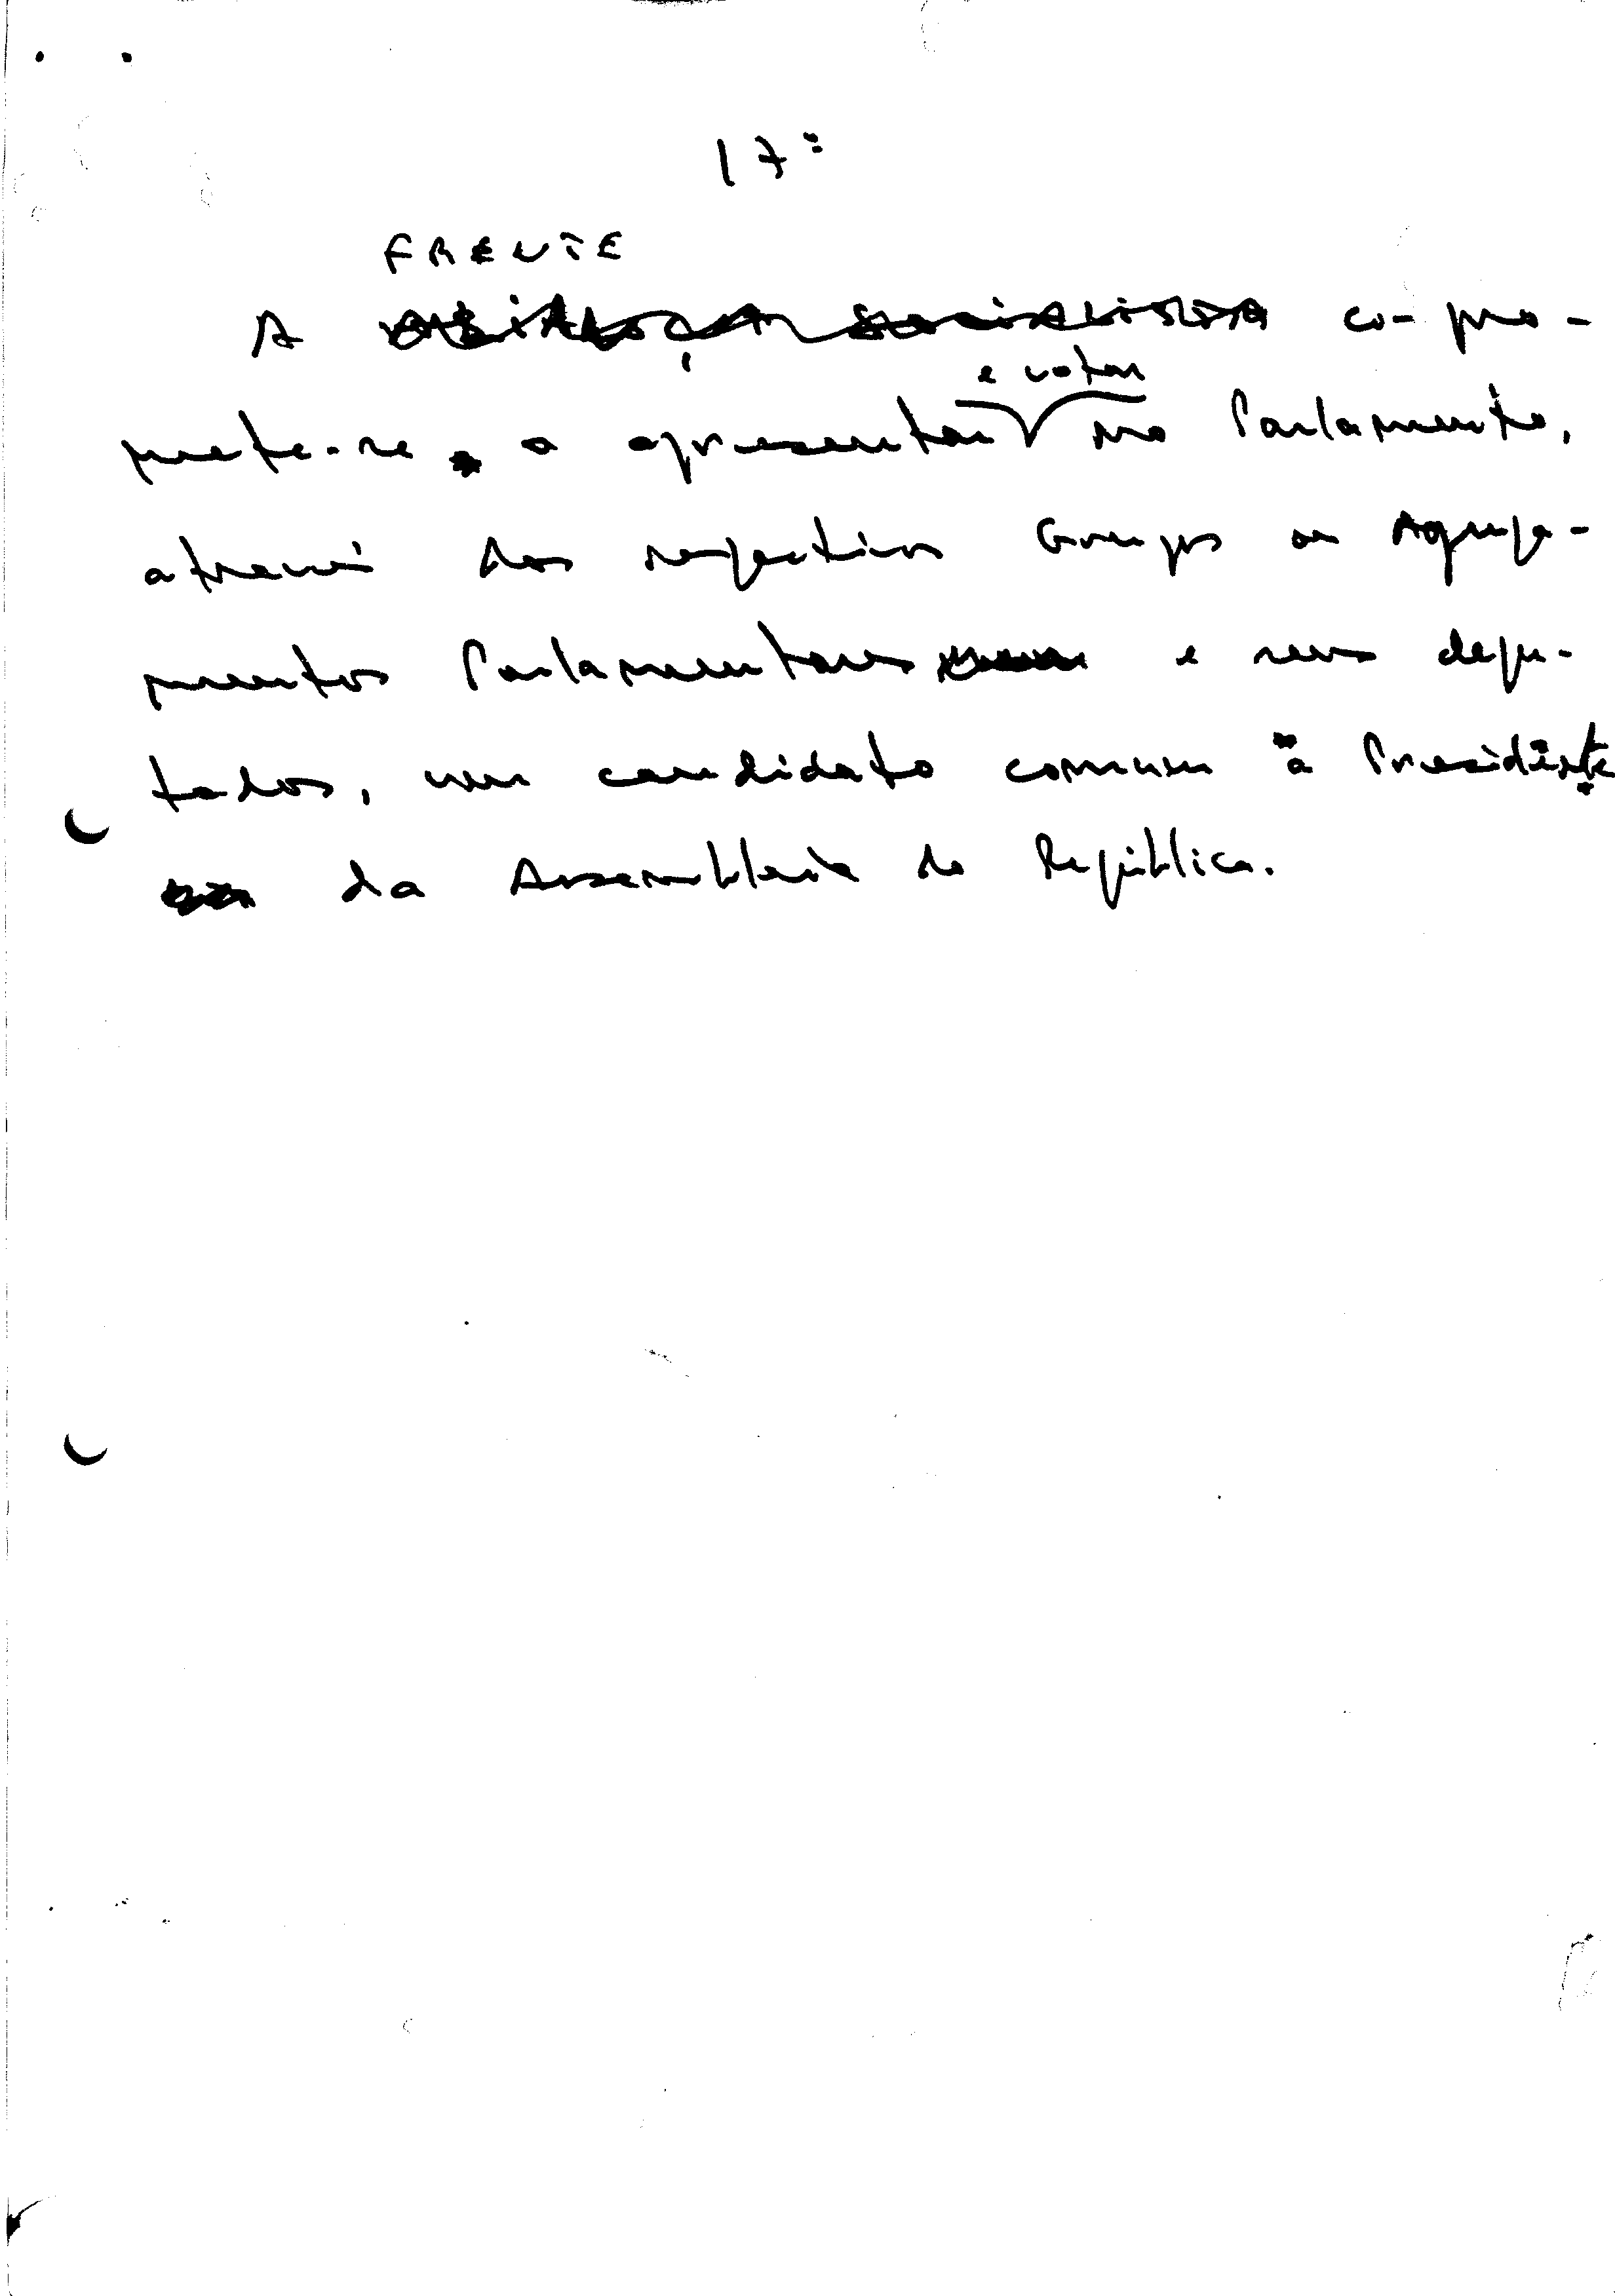 17º
FRENTE
A ALIANÇA SOCIALISTA compro-
e votar
mete-se a apresentar no Parlamento,
através dos respectivos Grupos ou Agrupa-
mentos Parlamentares e seus depu-
tados, um candidato comum a Presidente
da Assembleia da República.